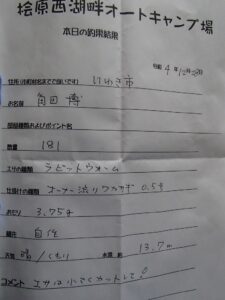 桧原西湖畔オートキャンプ場
本日の釣果結果
令和 4年12月
住所(市町村名までで良いです) いわき市
お名前 角田 博
部品種類およびポイント名
数量 181
エサの種類 ラビットウォーム
仕掛けの種類 オーナー渋りワカサギ 0.5号
おもり 3.75g
穂先 自作
天気 /くもり 水深 約 13.7m
コメント エサは小さくカットして!